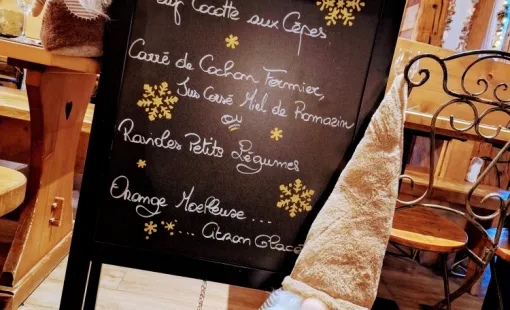 Cocotte aux Cèpes
Carré de Cochon Fermier,
Jus Corsé Miel de Romazin
ou
Ravioles Petits Légumes
Orange Moelleuse ...
... Citron Glacé